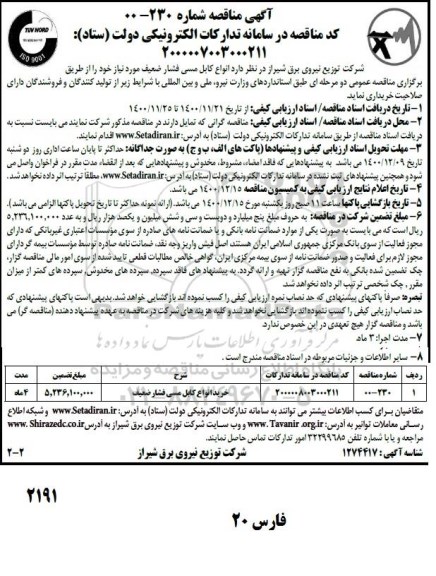 آگهی مناقصه شماره ۲۳۰-۰۰
کد مناقصه در سامانه تدارکات الکترونیکی دولت (ستاد):
۲۰۰۰۰۰۷۰۰۳۰۰۰۲۱۱
TUV NORD
ISO 9001
شرکت توزیع نیروی برق شیراز در نظر دارد انواع کابل مسی فشار ضعیف مورد نیاز خود را از طریق
برگزاری مناقصه عمومی دو مرحله ای طبق استانداردهای وزارت نیرو، ملی و بین المللی با شرایط زیر از تولید کنندگان و فروشندگان دارای
صلاحیت خریداری نماید.
۱- تاریخ دریافت اسناد مناقصه / اسناد ارزیابی کیفی: از تاریخ ۱۴۰۰/۱۱/۲۱ تا ۱۴۰۰/۱۱/۲۵
۲- محل دریافت اسناد مناقصه / اسناد ارزیابی کیفی: مناقصه گرانی که تمایل دارند در مناقصه مذکور شرکت نمایند می بایست نسبت به
دریافت اسناد مناقصه از طریق سامانه تدارکات الکترونیکی دولت (ستاد) به آدرس: www.Setadiran.ir اقدام نمایند.
۳- مهلت تحویل اسناد ارزیابی کیفی و پیشنهادها (پاکت های الف، ب و ج) به صورت جداگانه: حداکثر تا پایان ساعت اداری روز دو شنبه
تاریخ ۱۴۰۰/۱۲/۰۹ می باشد. به پیشنهادهایی که فاقد امضاء، مشروط، مخدوش و پیشنهادهایی که بعد از انقضاء مدت مقرر در فراخوان واصل می
شود و همچنین پیشنهادهای ثبت نشده در سامانه تدارکات الکترونیکی دولت (ستاد) به آدرس www.Setadiran.ir، مطلقاً ترتیب اثر داده نخواهد شد.
۴- تاریخ اعلام نتایج ارزیابی کیفی به کمیسیون مناقصه ۱۴۰۰/۱۲/۱۰ می باشد.
۵- تاریخ بازگشایی پاکتها ساعت ۱۱ صبح روز یکشنبه مورخ ۱۴۰۰/۱۲/۱۵ می باشد. (ارائه نمونه حداکثر تا تاریخ تحویل پاکتها الزامی می باشد).
۶- مبلغ تضمین شرکت در مناقصه: به حروف مبلغ پنج میلیارد و دویست و سی و شش میلیون و یکصد هزار ریال و به عدد ۵,۲۳۶,۱۰۰,۰۰۰
ریال است که می بایست به صورت یکی از موارد ضمانت نامه بانکی و یا ضمانت نامه های صادره از سوی مؤسسات اعتباری غیربانکی که دارای
مجوز فعالیت از سوی بانک مرکزی جمهوری اسلامی ایران هستند، اصل فیش واریز وجه نقد، ضمانت نامه صادره توسط مؤسسات بیمه گر دارای
مجوز لازم برای فعالیت و صدور ضمانت نامه از سوی بیمه مرکزی ایران، گواهی خالص مطالبات قطعی تایید شده از سوی امور مالی مناقصه گزار،
چک تضمین شده بانکی به نفع مناقصه گزار تهیه و ارائه گردد. به پیشنهاد های فاقد سپرده، سپرده های مخدوش، سپرده های کمتر از میزان
مقرر، چک شخصی ترتیب اثر داده نخواهد شد.
تبصره: صرفاً پاکتهای پیشنهادی که حد نصاب نمره ارزیابی کیفی را کسب نموده اند بازگشایی خواهد شد. بدیهی است پاکتهای پیشنهادی که
حد نصاب ارزیابی کیفی را کسب ننموده اند بازگشایی نخواهد شد و کلیه هزینه های شرکت در مناقصه به عهده پیشنهاد دهنده (مناقصه گر) می
باشد و مناقصه گزار هیچ تعهدی در این خصوص ندارد.
۷- مدت اجرا: ۴ ماه
۸- سایر اطلاعات و جزئیات مربوطه در اسناد مناقصه مندرج است.
ردیف شماره مناقصه کد مناقصه در سامانه تدارکات شرح مبلغ تضمین مدت
۱ ۲۳۰-۰۰ ۲۰۰۰۰۰۸۰۰۳۰۰۰۲۱۱ خرید انواع کابل مسی فشار ضعیف ۵,۲۳۶,۱۰۰,۰۰۰ ۴ ماه
متقاضیان برای کسب اطلاعات بیشتر می توانند به سامانه تدارکات الکترونیکی دولت (ستاد) به آدرس: www.Setadiran.ir و شبکه اطلاع
رسانی معاملات توانیر به آدرس: www.Tavanir.org.ir و وب سایت شرکت توزیع نیروی برق شیراز به آدرس www.Shirazedc.co.ir
مراجعه و یا با شماره تلفن ۳۲۲۹۹۶۸۵ امور تدارکات تماس حاصل نمایند.
شناسه آگهی: ۱۲۷۴۴۱۷ شرکت توزیع نیروی برق شیراز ۲-۲
۲۱۹۱
فارس ۲۰